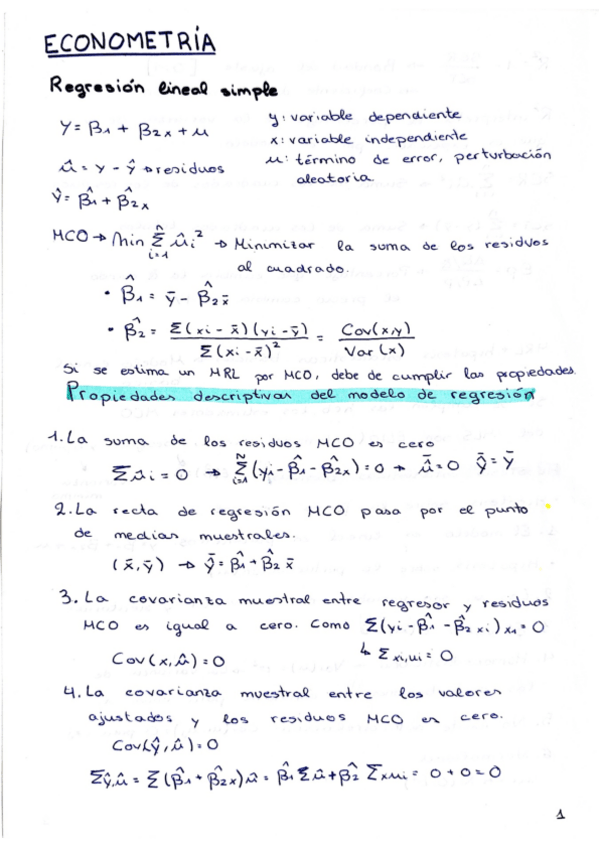 ECONOMETRÍA
Regresión lineal simple
Y = β1 + β2x + u
y: variable dependiente
x: variable independiente
û = y - ŷ → residuos
u: término de error, perturbación
aleatoria
ŷ = β̂1 + β̂2x
MCO → Min Σⁿᵢ₌₁ ûi² → Minimizar la suma de los residuos
al cuadrado.
• β̂1 = ȳ - β̂2x̄
• β̂2 = Σ(xi - x̄)(yi - ȳ) / Σ(xi - x̄)² = Cov(x,y) / Var(x)
Si se estima un MRL por MCO, debe de cumplir las propiedades.
Propiedades descriptivas del modelo de regresión
1. La suma de los residuos MCO es cero
Σûi = 0 → Σᴺᵢ₌₁ (yi - β̂1 - β̂2x) = 0 → ū = 0 ŷ̄ = ȳ
2. La recta de regresión MCO pasa por el punto
de medias muestrales.
(x̄, ȳ) → ȳ = β̂1 + β̂2 x̄
3. La covarianza muestral entre regresor y residuos
MCO es igual a cero. Como Σ(yi - β̂1 - β̂2 xi) x1 = 0
↳ Σ xi,ui = 0
Cov(x,û) = 0
4. La covarianza muestral entre los valores
ajustados y los residuos MCO es cero.
Cov(ŷ,û) = 0
Σŷ,û = Σ(β̂1 + β̂2x)û = β̂1 Σû + β̂2 Σxui = 0 + 0 = 0
1